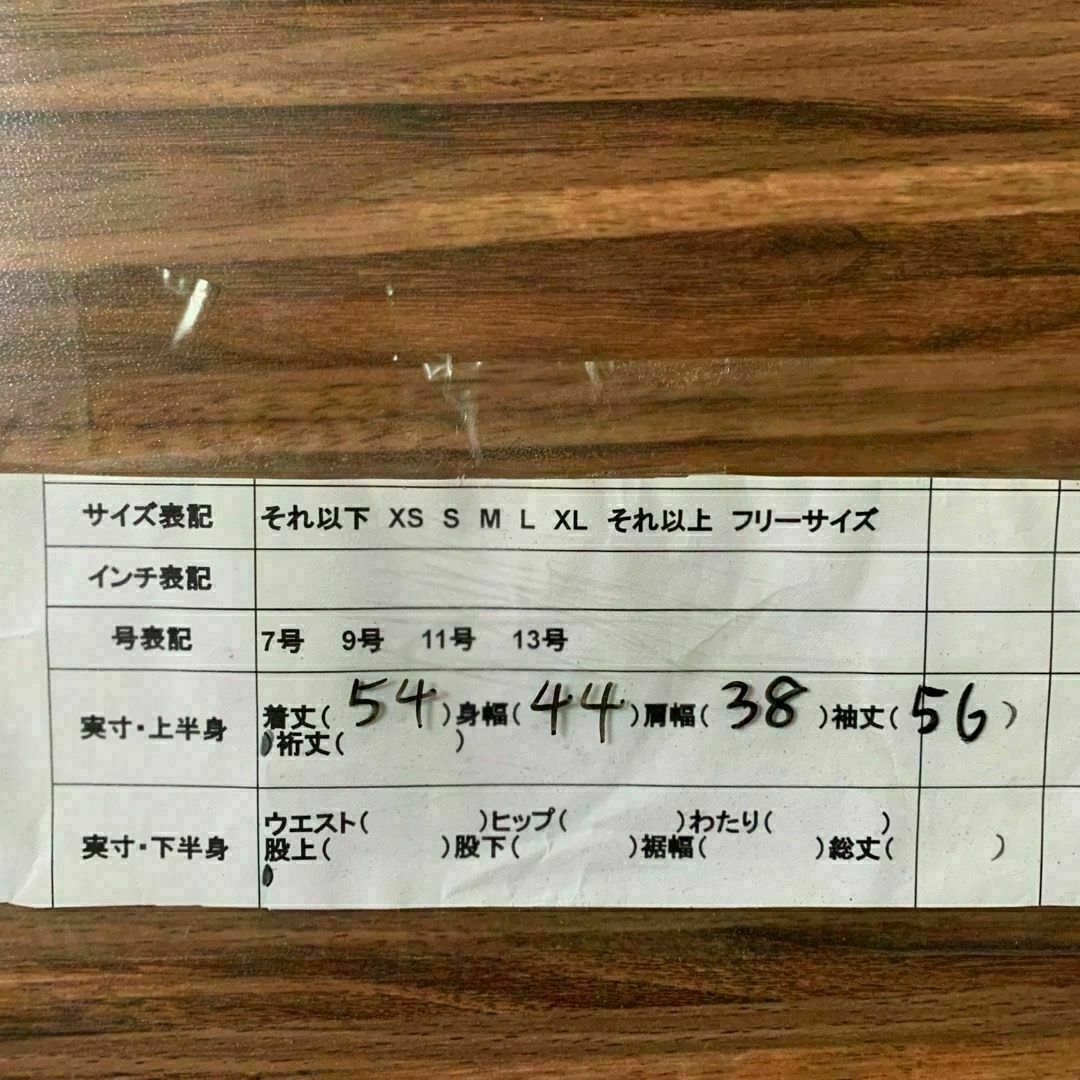 サイズ表記 それ以下 XS S M L XL それ以上 フリーサイズ
インチ表記
号表記 7号 9号 11号 13号
実寸・上半身 着丈( 54 )身幅( 44 )肩幅( 38 )袖丈( 56 )
裄丈( )
実寸・下半身 ウエスト( )ヒップ( )わたり( )
股上( )股下( )裾幅( )総丈( )